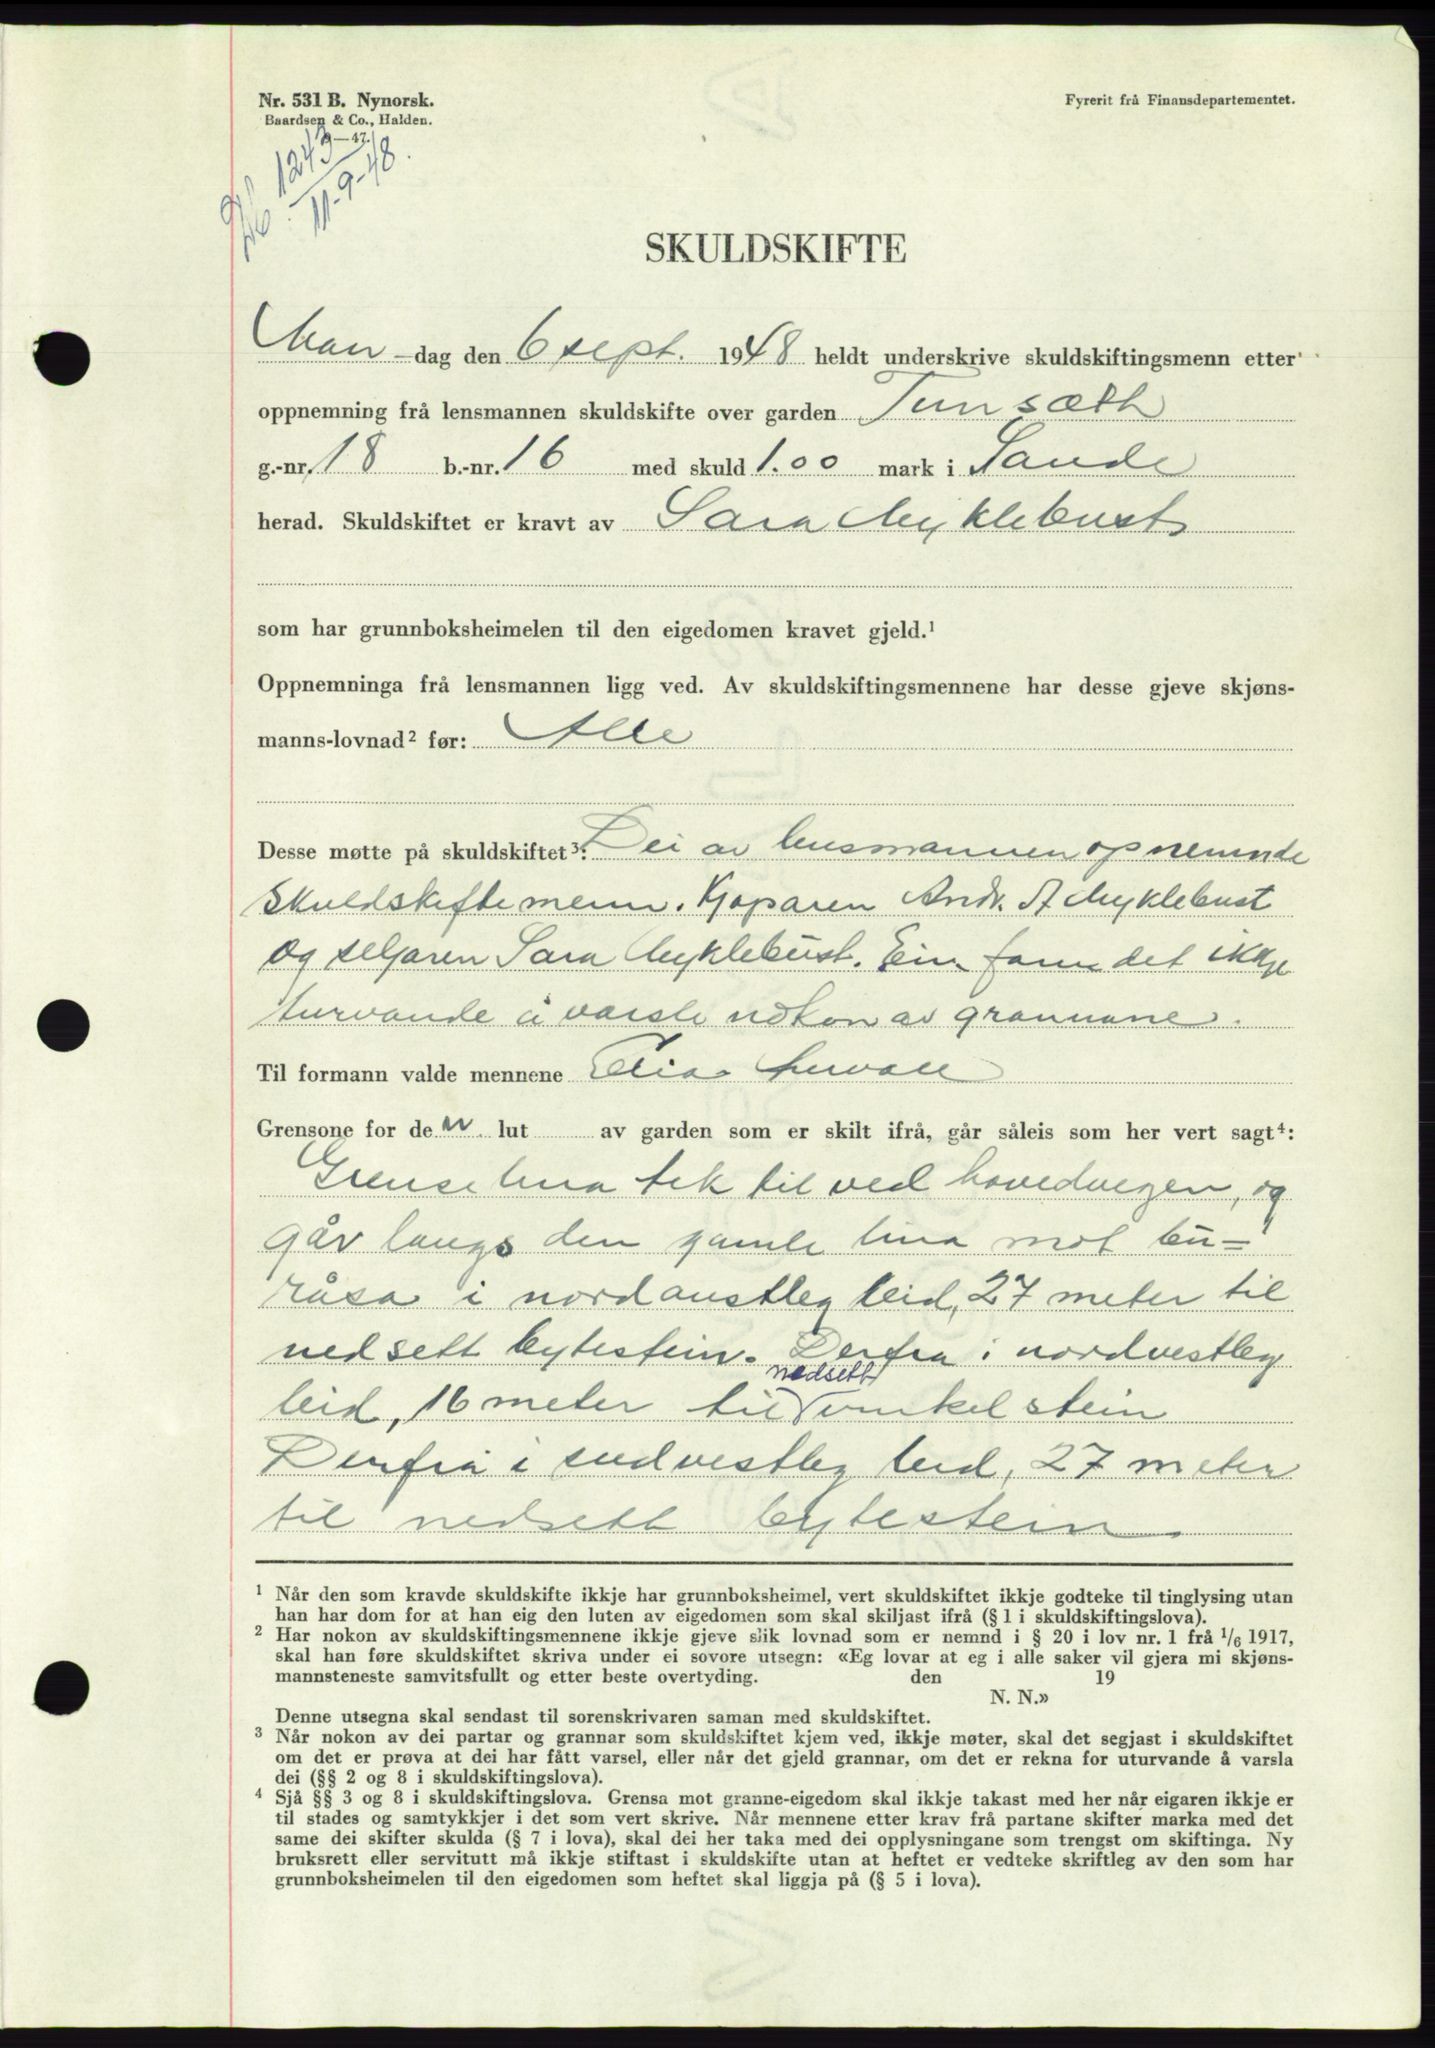 Nr. 531 B. Nynorsk.
Baardsen & Co., Halden.
—47.
1243
11-9-48.
Fyrerit frå Finansdepartementet.
SKULDSKIFTE
Man-dag den 6 sept. 1948 heldt underskrive skuldskiftingsmenn etter
oppnemning frå lensmannen skuldskifte over garden Tunsæth
g.-nr. 18 b.-nr. 16 med skuld 1.00 mark i Sande
herad. Skuldskiftet er kravt av Sara Myklebust
som har grunnboksheimelen til den eigedomen kravet gjeld.¹
Oppnemninga frå lensmannen ligg ved. Av skuldskiftingsmennene har desse gjeve skjøns-
manns-lovnad² før: Alle
Desse møtte på skuldskiftet³: Dei av lensmannen opnemnde
skuldskiftemenn. Kjøparen Andr. A Myklebust
og seljaren Sara Myklebust. Ein fann det ikkje
turvande å varsle nokon av grannane.
Til formann valde mennene Elias
Grensone for den lut av garden som er skilt ifrå, går såleis som her vert sagt⁴:
Grenselina tek til ved hovedvegen, og
går langs den gamle lina mot bu-
råsa i nordaustleg leid, 27 meter til
nedsett bytestein. Derfra i nordvestleg
nedsett
leid, 16 meter til vinkelstein
Derfrå i sudvestleg leid, 27 meter
til nedsett bytestein.
¹ Når den som kravde skuldskifte ikkje har grunnboksheimel, vert skuldskiftet ikkje godteke til tinglysing utan
han har dom for at han eig den luten av eigedomen som skal skiljast ifrå (§ 1 i skuldskiftingslova).
² Har nokon av skuldskiftingsmennene ikkje gjeve slik lovnad som er nemnd i § 20 i lov nr. 1 frå 1/6 1917,
skal han føre skuldskiftet skriva under ei sovore utsegn: «Eg lovar at eg i alle saker vil gjera mi skjøns-
mannsteneste samvitsfullt og etter beste overtyding. den 19
N. N.»
Denne utsegna skal sendast til sorenskrivaren saman med skuldskiftet.
³ Når nokon av dei partar og grannar som skuldskiftet kjem ved, ikkje møter, skal det segjast i skuldskiftet
om det er prøva at dei har fått varsel, eller når det gjeld grannar, om det er rekna for uturvande å varsla
dei (§§ 2 og 8 i skuldskiftingslova).
⁴ Sjå §§ 3 og 8 i skuldskiftingslova. Grensa mot granne-eigedom skal ikkje takast med her når eigaren ikkje er
til stades og samtykkjer i det som vert skrive. Når mennene etter krav frå partane skifter marka med det
same dei skifter skulda (§ 7 i lova), skal dei her taka med dei opplysningane som trengst om skiftinga. Ny
bruksrett eller servitutt må ikkje stiftast i skuldskifte utan at heftet er vedteke skriftleg av den som har
grunnboksheimelen til den eigedomen som heftet skal liggja på (§ 5 i lova).